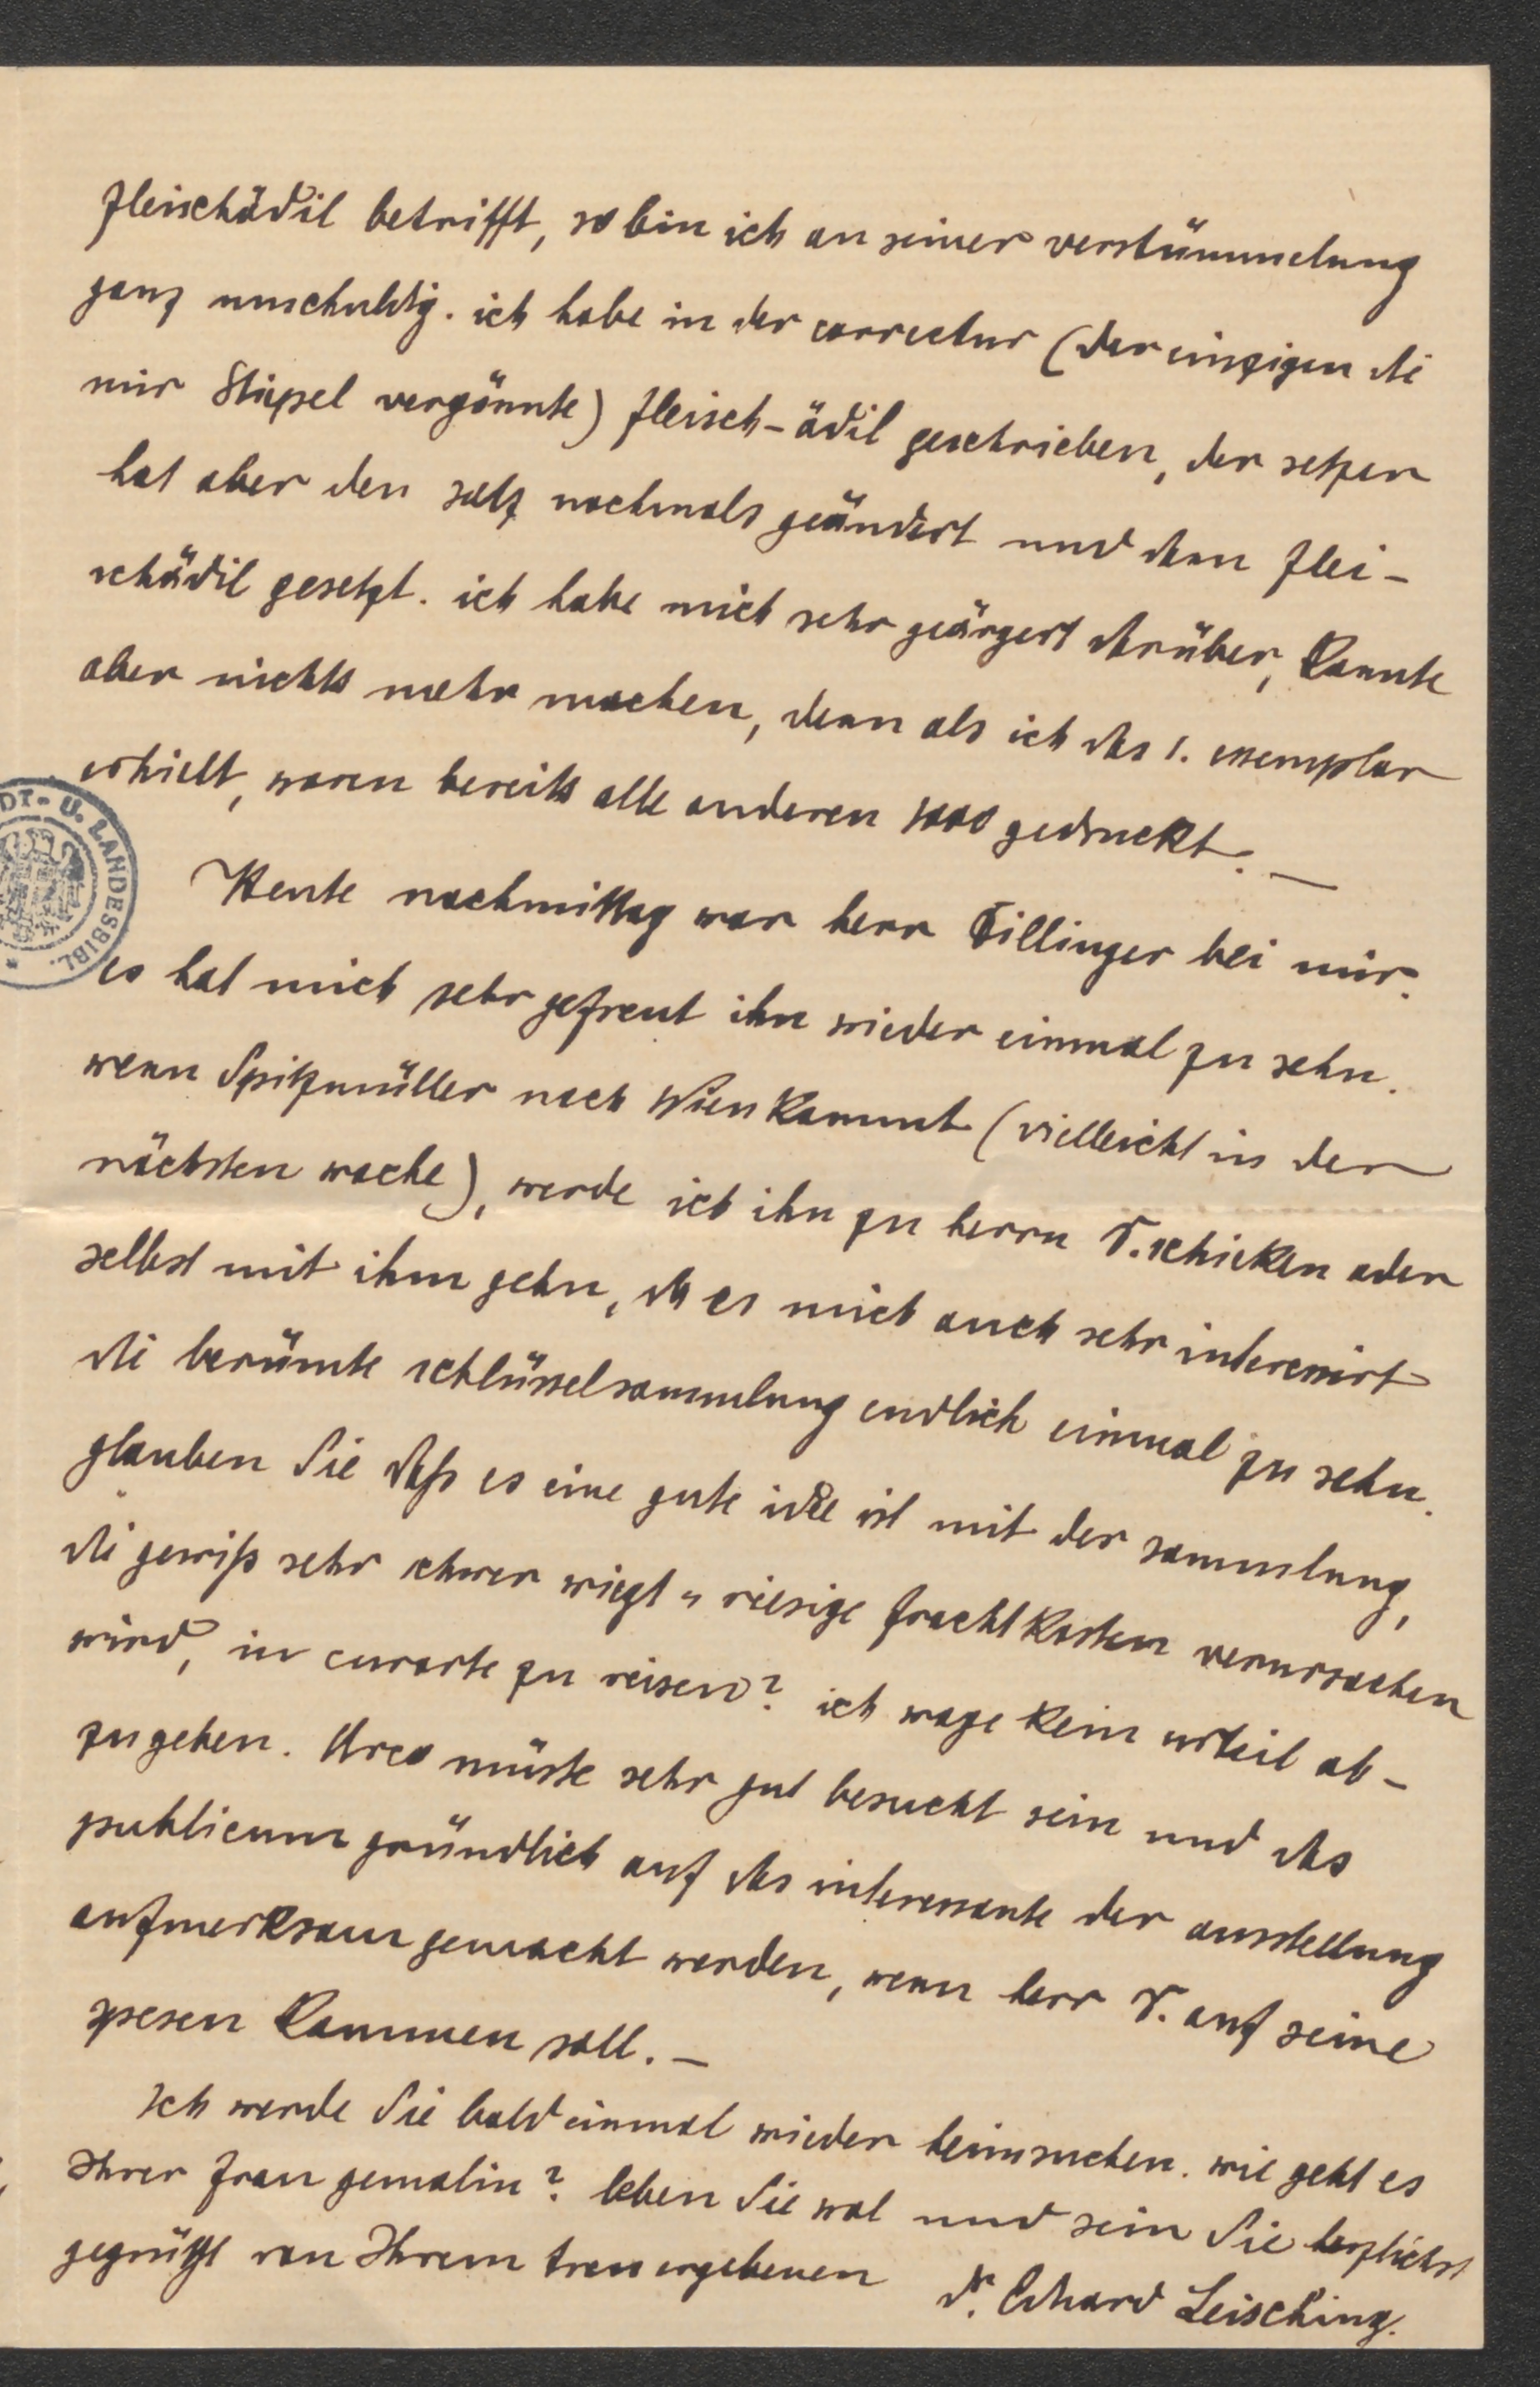 fleischädil betrifft, so bin ich an seiner verstümmelung
ganz unschuldig. ich habe in der correctur (der einzigen di
mir Stiepel vergönnte) fleisch-ädil geschrieben, der setzer
hat aber den satz nochmals geändert und dan flei-
schädil gesetzt. ich habe mich sehr geärgert darüber, konnte
aber nichts mehr machen, denn als ich das 1. exemplar
erhielt, waren bereits alle anderen 1000 gedruckt. —
Heute nachmittag war herr Dillinger bei mir.
es hat mich sehr gefreut ihn wieder einmal zu sehn.
wenn Spitzmüller nach Wien kommt (vielleicht in der
nächsten woche), werde ich ihn zu herrn D. schicken oder
selbst mit ihm gehn, da es mich auch sehr interessirt
di berümte schlüsselsammlung endlich einmal zu sehn.
glauben Sie daß es eine gute idee ist mit der sammlung,
di gewiß sehr schwer wiegt u riesige frachtkosten verursachen
wird, in curorte zu reisen? ich wage kein urteil ab-
zugeben. Arco müste sehr gut besucht sein und das
publicum gründlich auf das interessante der ausstellung
aufmerksam gemacht werden, wenn herr D. auf seine
spesen kommen soll. —
Ich werde Sie bald einmal wieder heimsuchen. wie geht es
Ihrer frau gemalin? leben Sie wol und sein Sie herzlichst
gegrüßt von Ihrem treu ergebenen
dr. Eduard Leisching.
DT- U. LANDESBIBL.